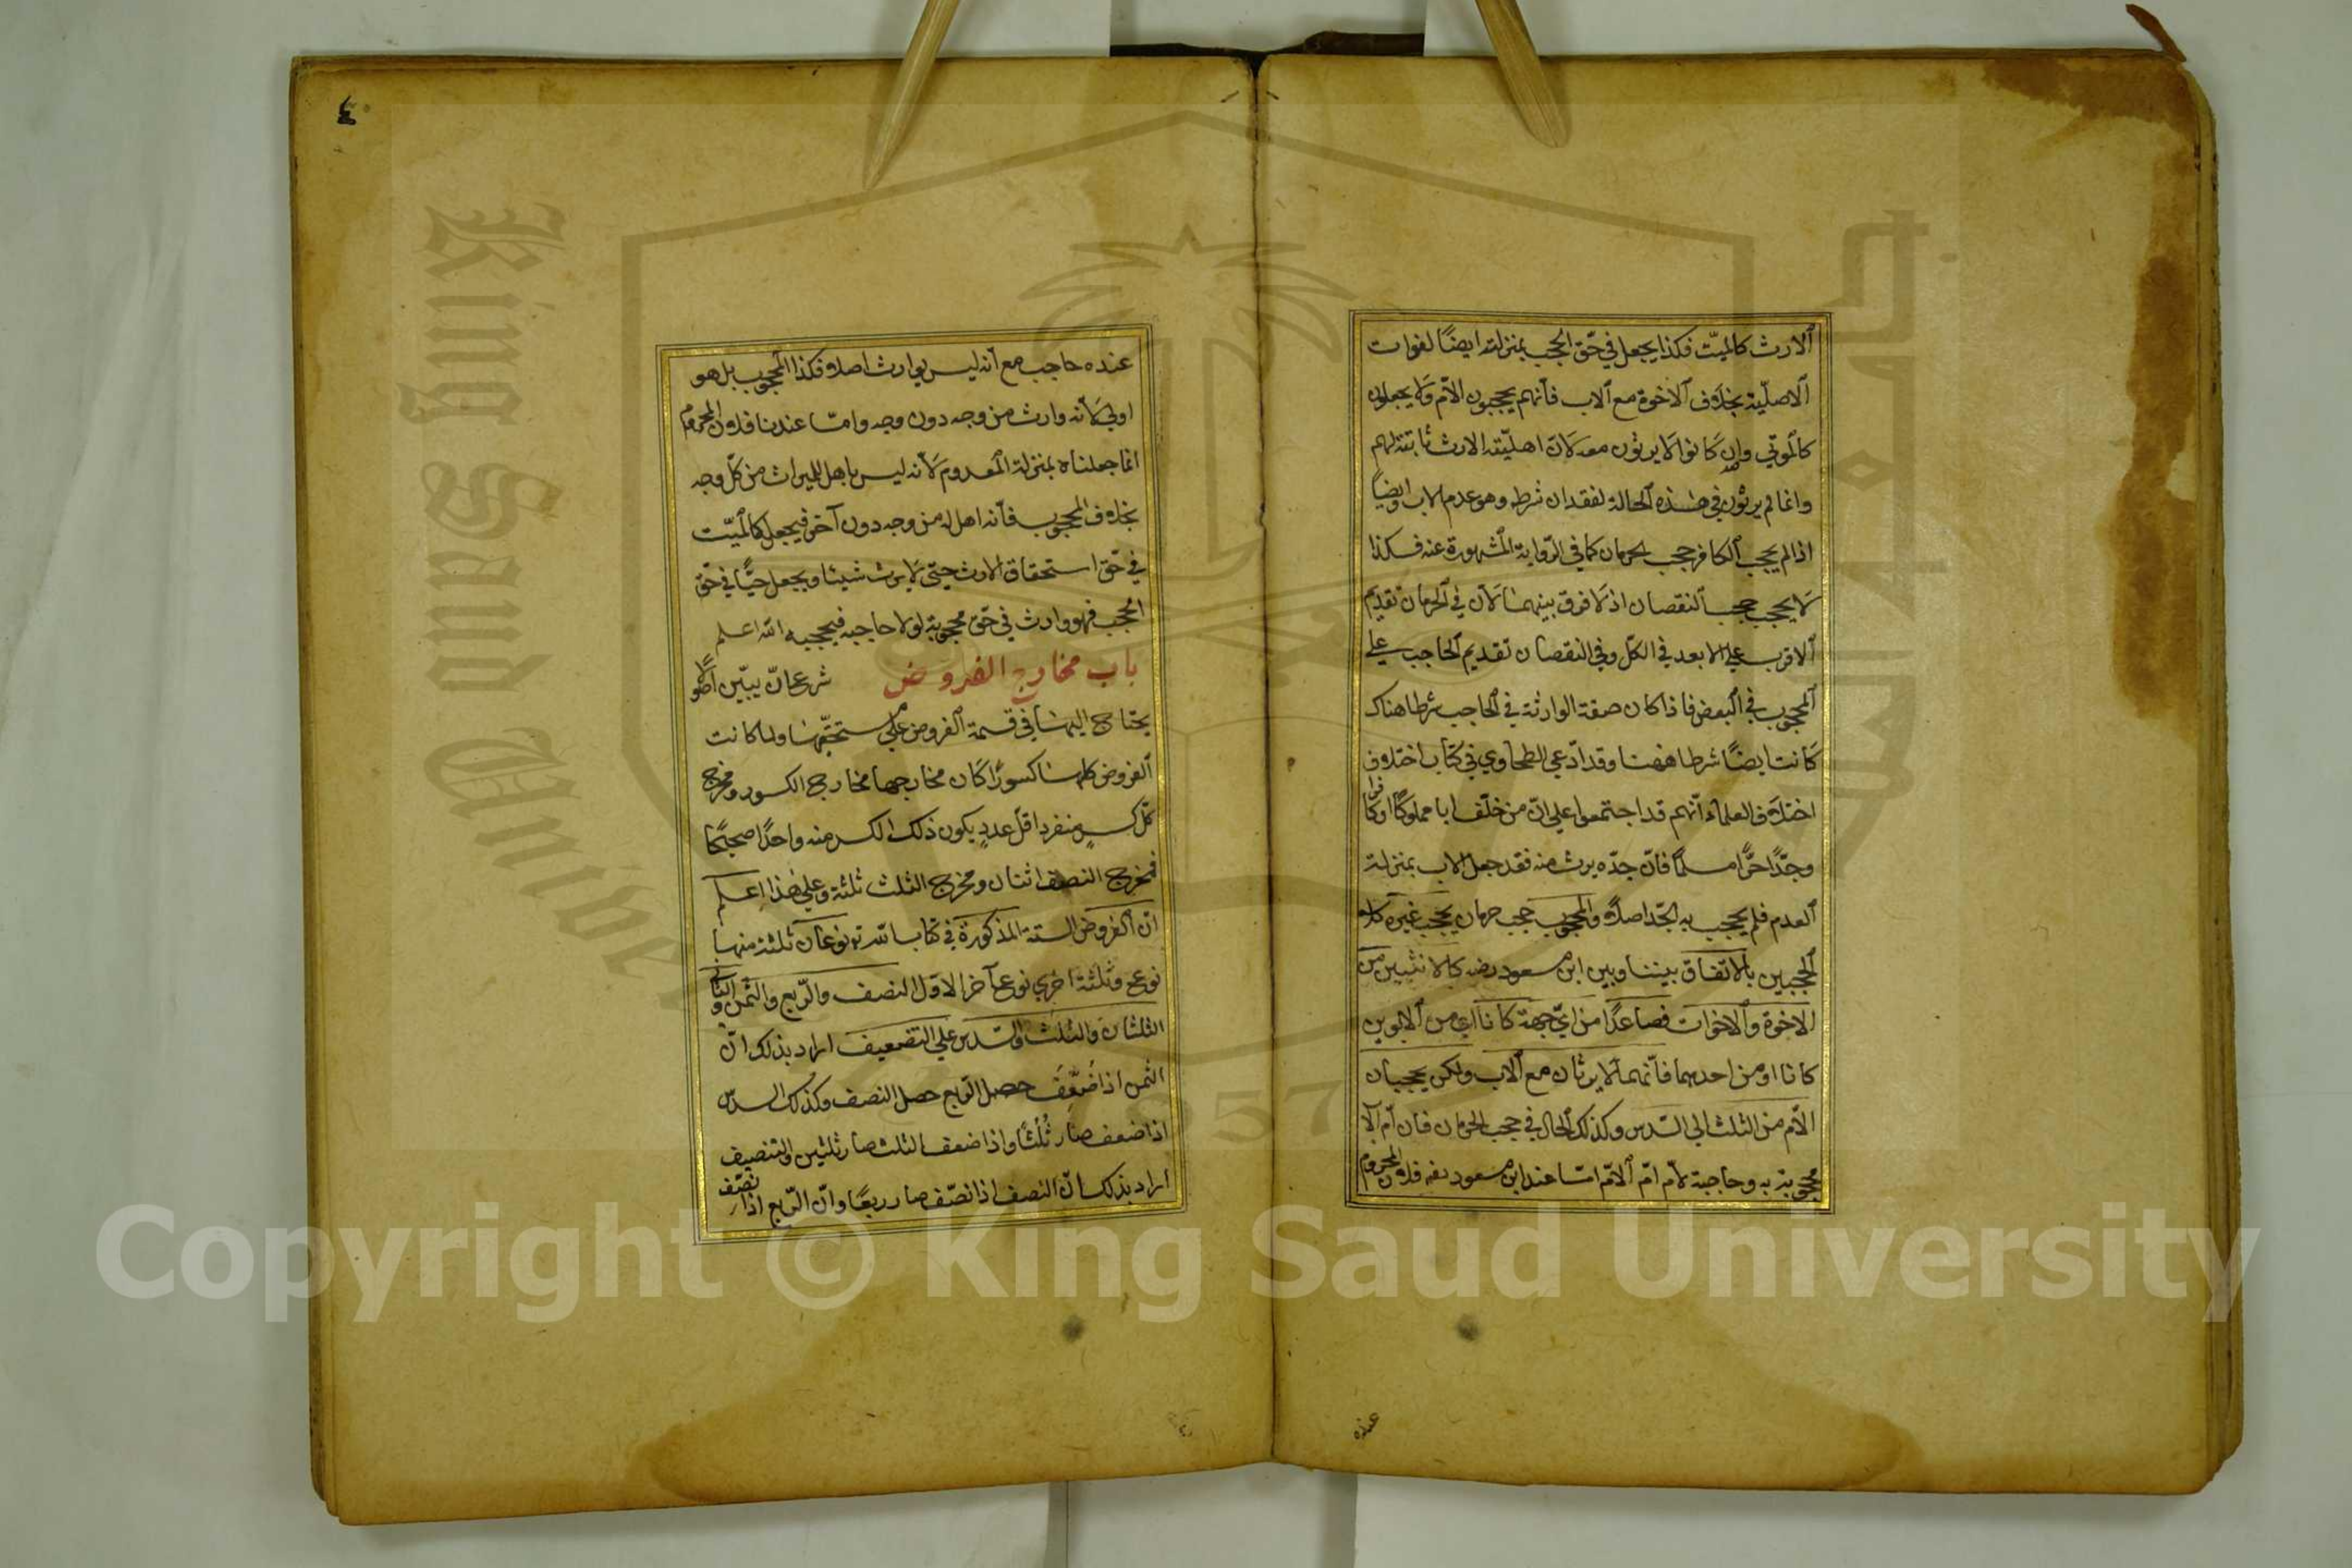 الارث كالميّت فكذا يجعل في حقّ الحجب بمنزلته ايضًا لفوات
الاصليّة بخلاف الاخوة مع الاب فانّهم يحجبون الامّ ولا يجعلون
كالموتي وان كانوا لا يرثون معه لانّ اهليّته الارث ثابتة لهم
وانما لم يرثون في هذه الحالة لفقدان شرطه وهو عدم الاب وايضاً
اذا لم يحجب الكافر حجب الحرمان كما في الرّواية المشهورة عنه فكذا
لا يحجب حجب النقصان اذ لا فرق بينهما لانّ في الحرمان تقديم
الاقرب علي الابعد في الكلّ وفي النقصان تقديم الحاجب علي
المحجوب في البعض فاذا كان صفة الوارثة في الحاجب شرطا هناك
كانت ايضًا شرطا ههنا وقد ادّعي الطحاوي في كتاب اختلاف
اختلاف العلماء انّهم قد اجتمعوا علي انّ من خلّف ابا مملوكًا او كافرا
وجدّا حرًّا مسلمًا فانّ جدّه يرث منه فقد جعل الاب بمنزلة
العدم فلم يحجب به الجدّ اصلاً والمحجوب حجب حرمان يحجب غيره كلا
الحجبين بالاتفاق بيننا وبين ابن مسعود رضه كالاثنين من
الاخوة والاخوات فصاعدًا من ايّ جهة كانا اي من الابوين
كانا او من احدهما فانّهما لا يرثان مع الاب ولكن يحجبان
الامّ من الثلث الي السّدس وكذلك الحال في حجب الحرمان فان امّ الا
محجوبة به وحاجبة لامّ امّ الامّ امّا عند ابن مسعود رضه فلانّ المحروم
عنده
٤
عنده حاجب مع انّه ليس بوارث اصلا فكذا المحجوب بل هو
اولي لانّه وارث من وجه دون وجه وامّا عندنا فلان المحروم
انما جعلناه بمنزلة المعدوم لانّه ليس باهل للميراث من كلّ وجه
بخلاف المحجوب فانّه اهل له من وجه دون آخر فيجعل كالميّت
في حقّ استحقاق الارث حتّي لا يرث شيئا ويجعل حيًّا في حقّ
الحجب فهو وارث في حقّ محجوبة لولا حاجبه فيحجبه الله اعلم
باب مخارج الفروض شرع ان يبيّن
يحتاج اليها في قسمة الفروض علي مستحقّيها ولما كانت
الفروض كلها كسورًا كان مخارجها مخارج الكسور ومخرج
كلّ كسرٍ منفرد اقلّ عددٍ يكون ذلك الكسر منه واحدًا صحيحًا
فمخرج النصف اثنان ومخرج الثلث ثلثة وعلي هذا اعلم
انّ الفروض الستة المذكورة في كتاب الله تع نوعان ثلثة منها
نوع وثلثة اخري نوع آخر الاوّل النصف والرّبع والثمن والثاني
الثلثان والثلث والسّدس علي التضعيف اراد بذلك انّ
الثمن اذا ضُعِّفَ حصل الرّبع حصل النصف وكذلك السدس
اذا ضعف صار ثُلُثًا واذا ضعف الثلث صار ثلثين والتنصيف
اراد بذلك انّ النصف اذا نصّف صار ربعًا وانّ الرّبع اذا نصّف